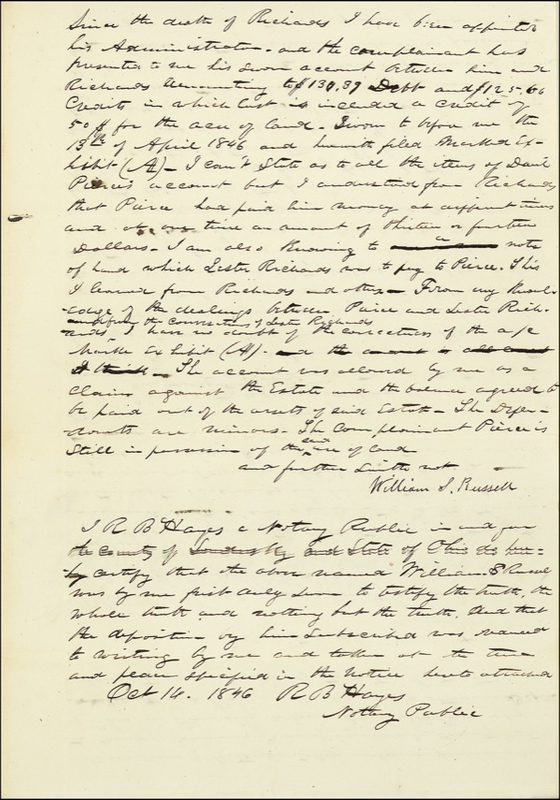 Since the death of Richards I have been appointed
his Administrator - and the complainant has
presented to me his sworn account between him and
Richards amounting to $130,39 Debt and $125.60
Credits in which last is included a credit of
50$ for the acre of land - Sworn to before me the
13th of April 1846 and herewith filed Marked Ex-
hibit (A) - I can't state as to all the items of
Pierce's account but I understood from Richards
that Pierce had paid him money at different times
and at one time an amount of thirteen or fourteen
Dollars - I am also knowing to a note
of hand which Lester Richards was to pay to Pierce. This
I learned from Richards and others - From my knowl-
edge of the dealings between Pierce and Lester Rich-
and from the conversations of Lester Richards
ards I have no doubt of the correctness of the a/c
Marked Exhibit (A) - and the amount is
- The account was allowed by me as a
claim against the Estate and the balance agreed to
be paid out of the assets of said Estate - The Defen-
dants are minors - The Complainant Pierce is
still in possession of the said acre of land
and further saith not
William S. Russell
I R B Hayes a Notary Public in and for
the County of Sandusky and State of Ohio do here-
by certify that the above named William S Russell
was by me first duly sworn to testify the truth, the
whole truth and nothing but the truth. And that
the deposition by him subscribed was reduced
to writing by me and taken at the time
and place specified in the notice hereto attached
Oct 14. 1846 R B Hayes
Notary Public